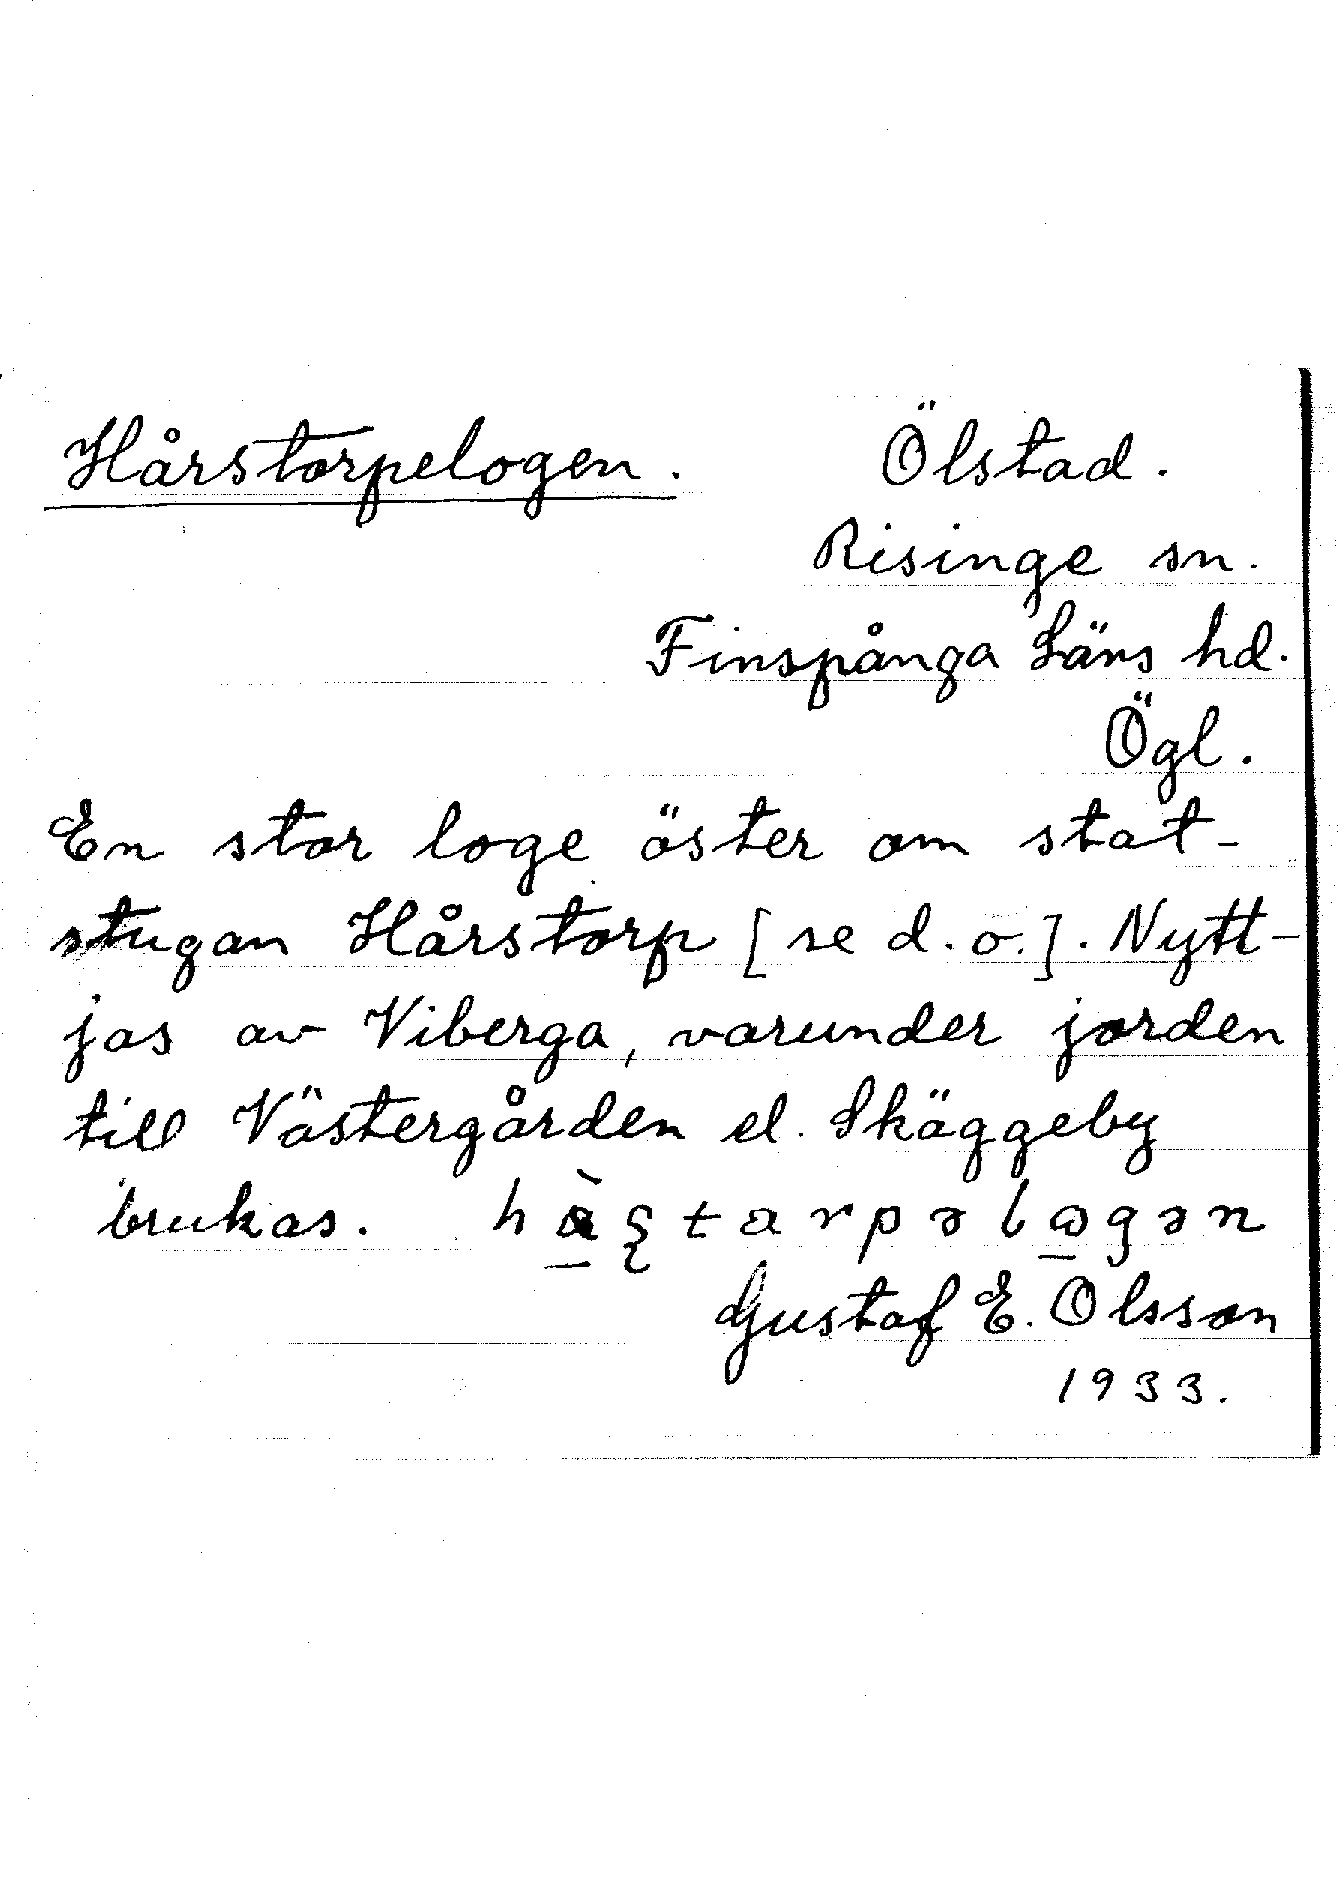 Hårstorpelogen. Ölstad.
Risinge sn.
Finspånga Läns hd.
Ögl.
En stor loge öster om stat-
stugan Hårstorp [se d. o.]. Nytt-
jas av Viberga, varunder jorden
till Västergården el. Skäggeby
brukas.
Gustaf E. Olsson
1933.